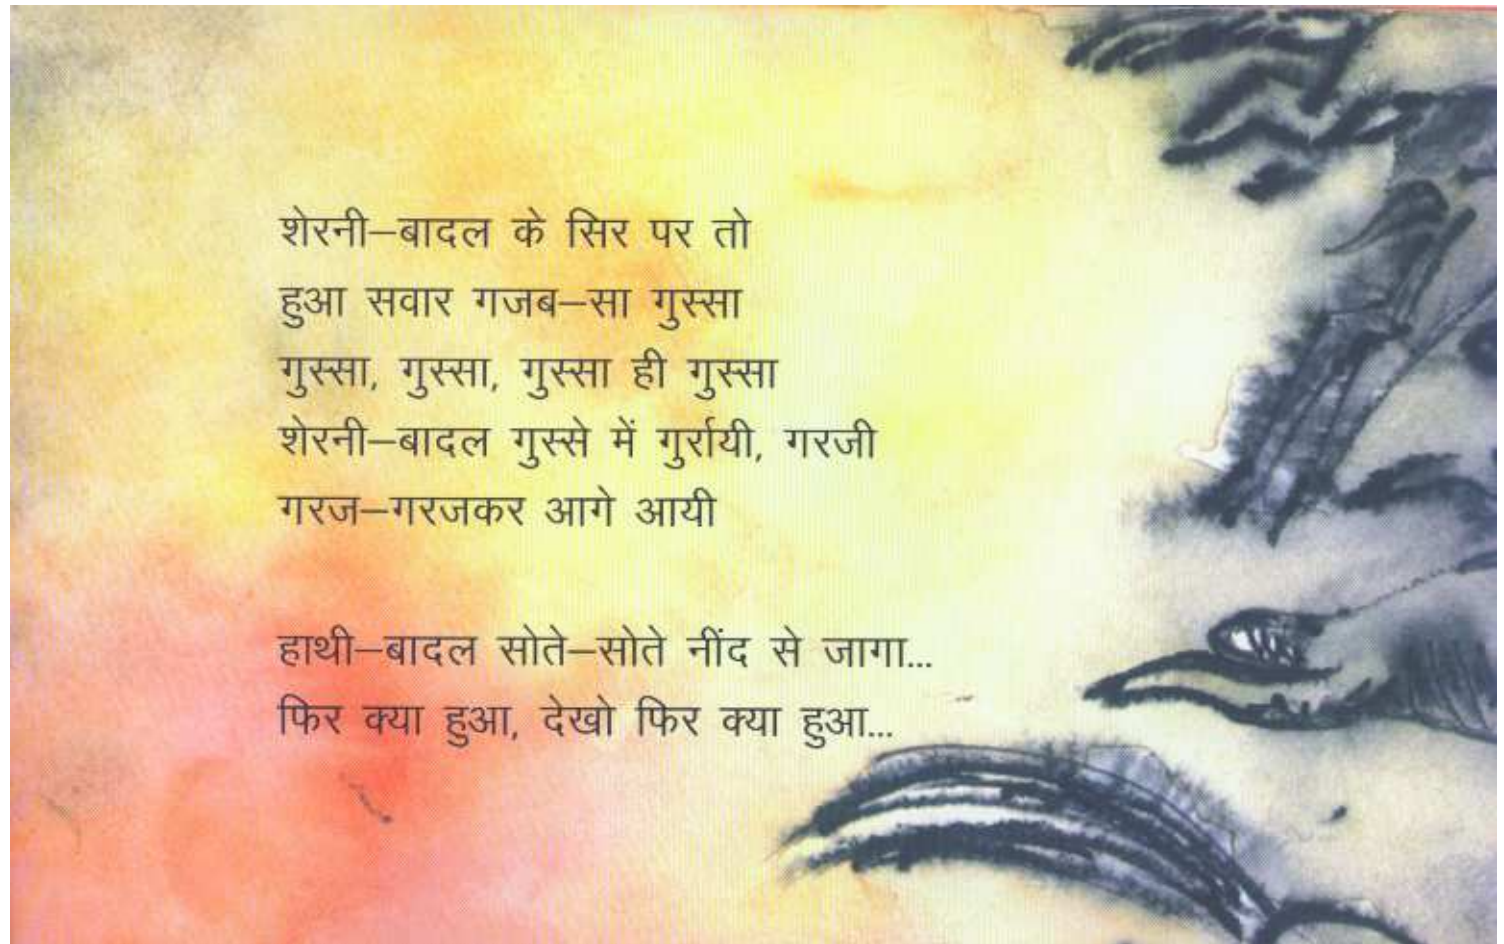 शेरनी–बादल के सिर पर तो
हुआ सवार गजब–सा गुस्सा
गुस्सा, गुस्सा, गुस्सा ही गुस्सा
शेरनी–बादल गुस्से में गुर्रायी, गरजी
गरज–गरजकर आगे आयी
हाथी–बादल सोते–सोते नींद से जागा...
फिर क्या हुआ, देखो फिर क्या हुआ...